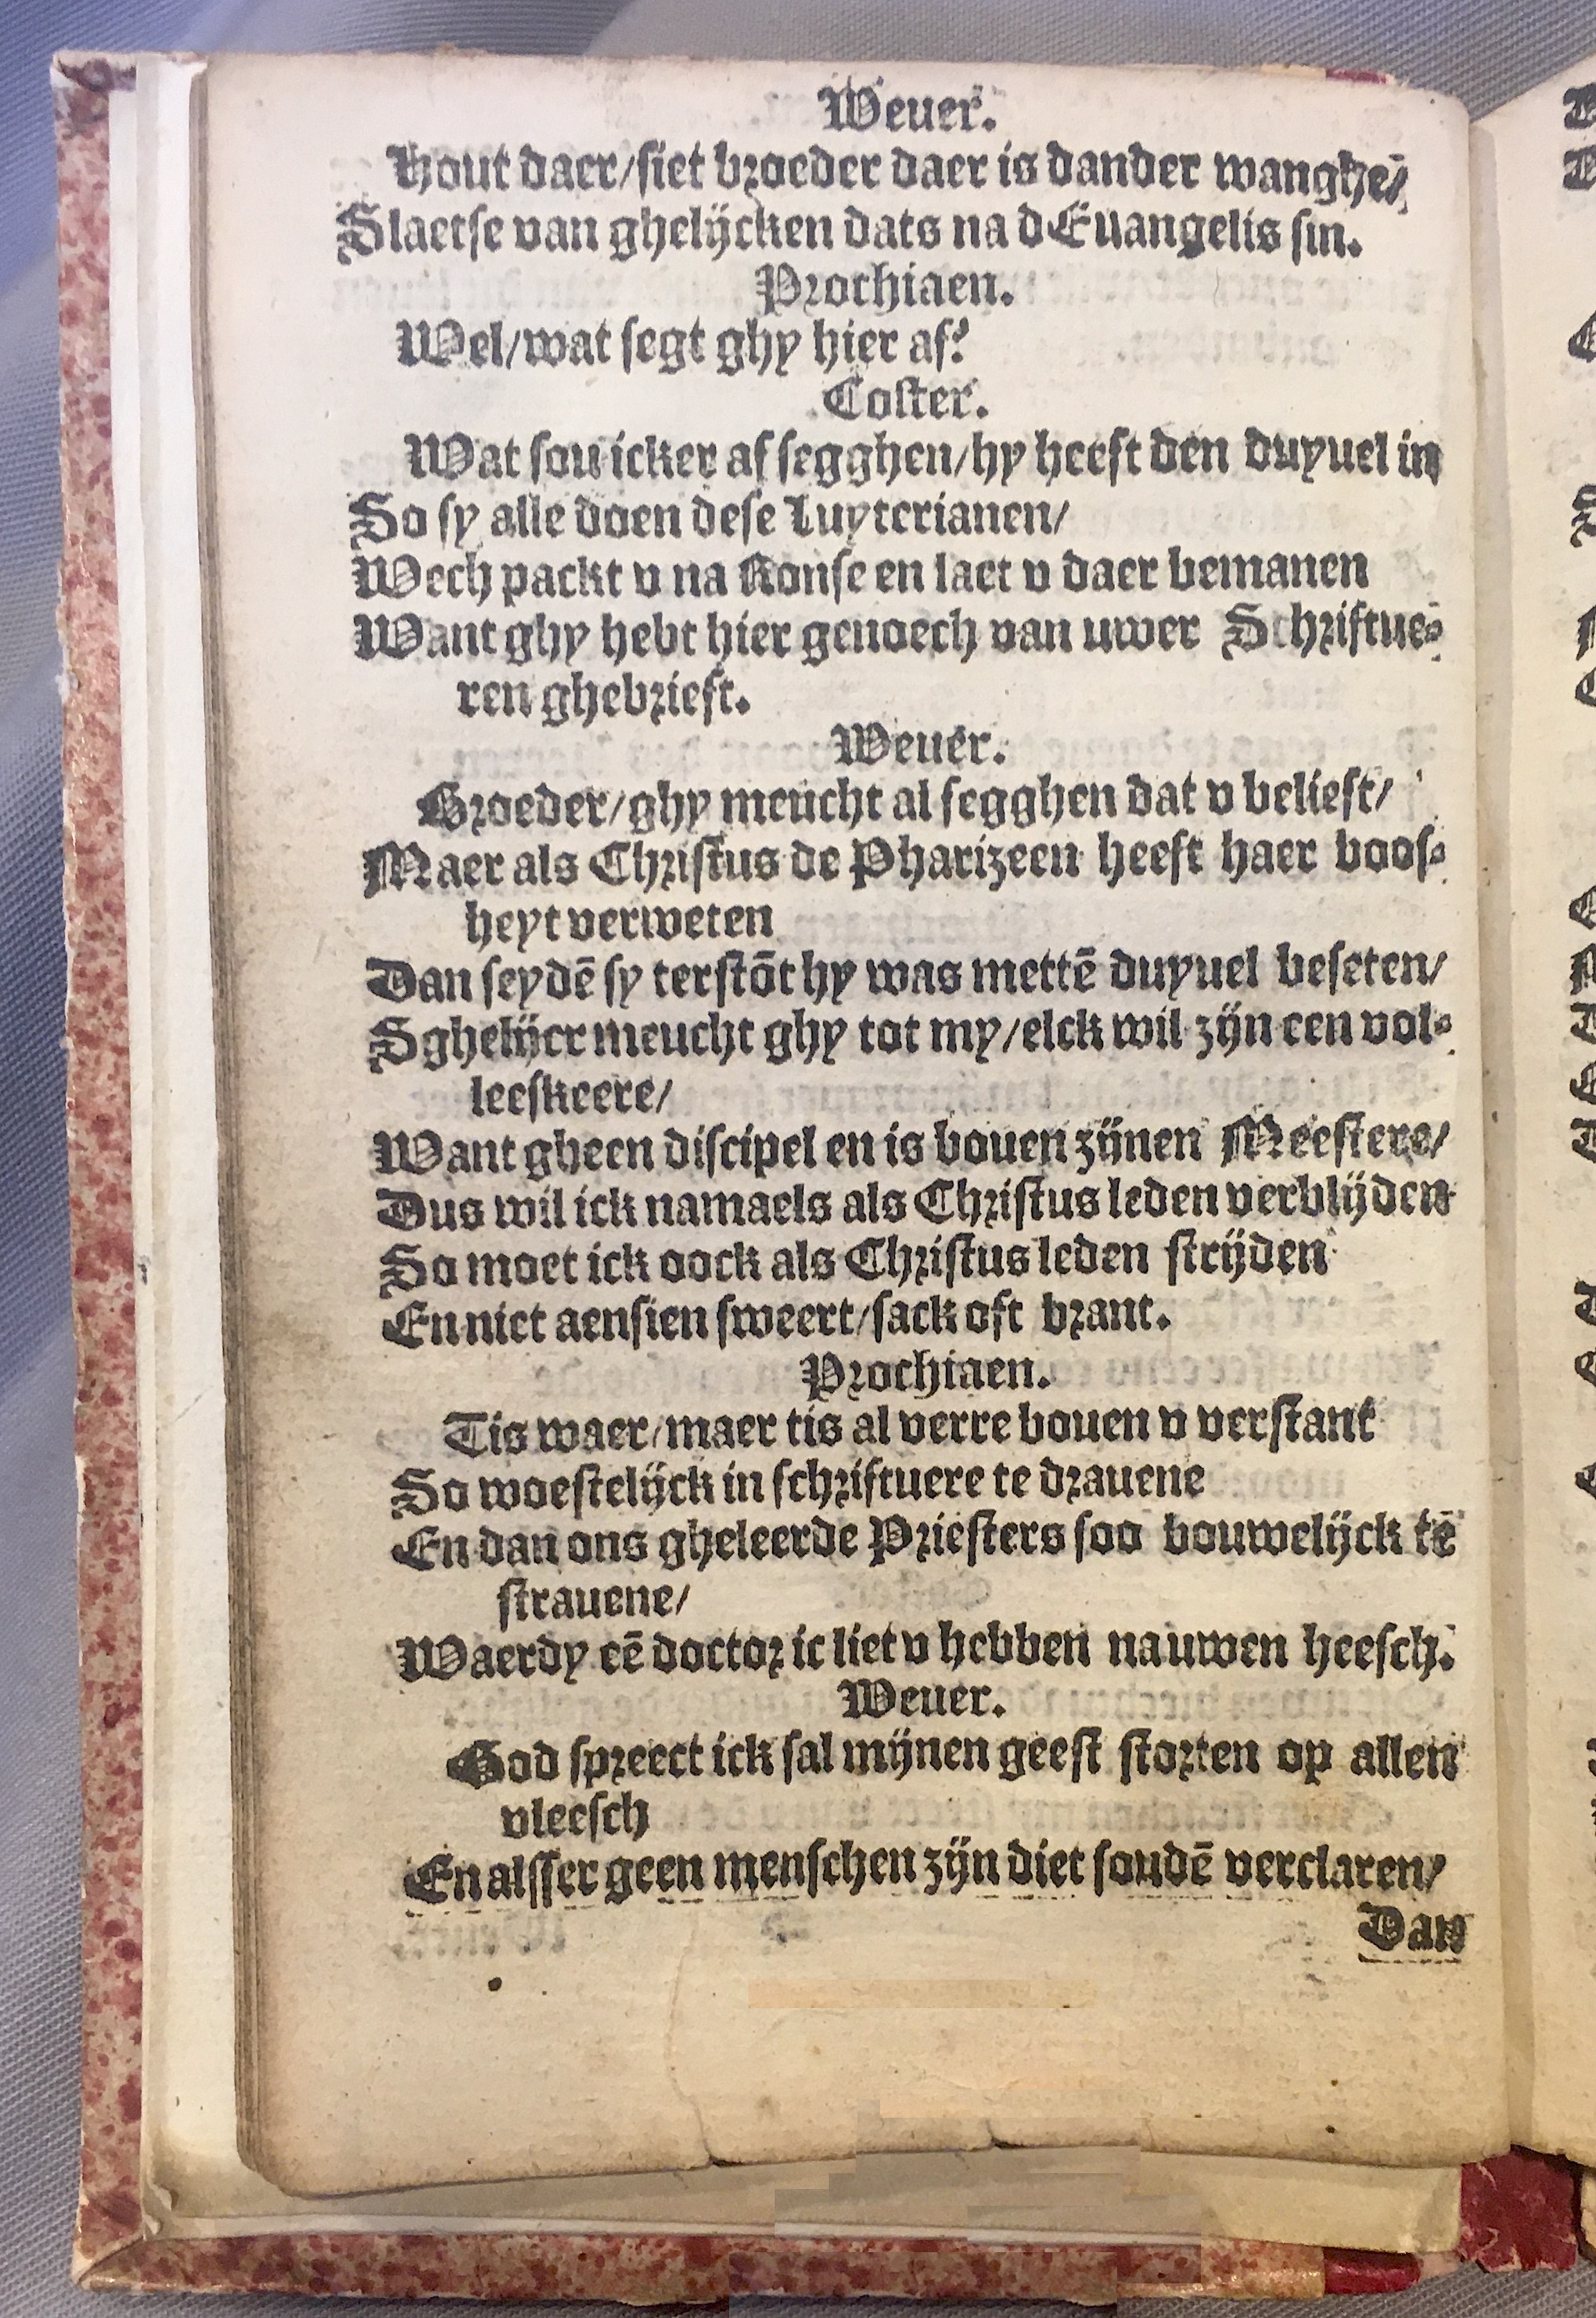 Weuer.
Hout daer/siet broeder daer is dander wanghe/
Slaetse van ghelijcken dats na d Euangelis sin.
Prochiaen.
Wel/wat segt ghy hier af?
Coster.
Wat sou icker af segghen/hy heeft den duyuel in
So sy alle doen dese Luyterianen/
Wech packt v na Ronse en laet v daer bemanen
Want ghy hebt hier genoech van uwer Schriftue-
ren ghebrieft.
Weuer.
Broeder/ghy meucht al segghen dat v belieft/
Maer als Christus de Pharizeen heeft haer boos-
heyt verweten
Dan seydē sy terstōt hy was mettē duyuel beseten/
Sghelijcx meucht ghy tot my/elck wil zijn een vol-
leeskeere/
Want gheen discipel en is bouen zijnen Meestere/
Dus wil ick namaels als Christus leden verblijden
So moet ick oock als Christus leden strijden
En niet aensien sweert/sack oft brant.
Prochiaen.
Tis waer/maer tis al verre bouen v verstant
So woestelijck in schriftuere te drauene
En dan ons gheleerde Priesters soo bouwelijck te
strauene/
Waerdy eē doctor ic liet v hebben nauwen heesch.
Weuer.
God spreect ick sal mijnen geest storten op allen
vleesch
En alsser geen menschen zijn diet soudē verclaren/
Dan